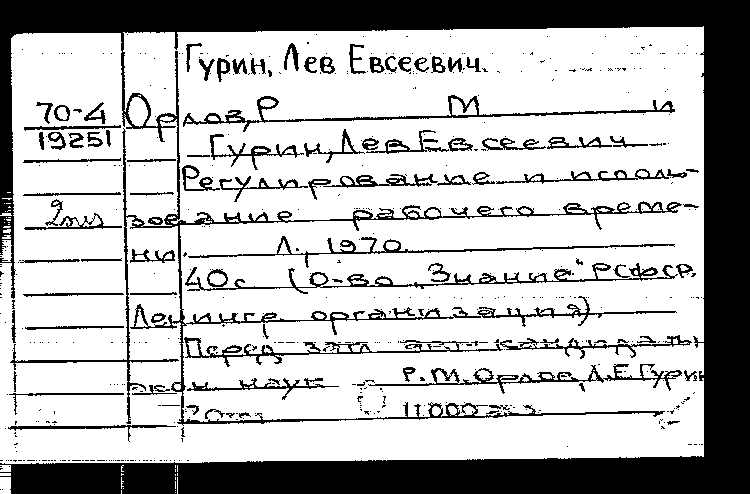 Гурин, Лев Евсеевич.
70-4 Орлов, Р М и
19251 Гурин, Лев Евсеевич
Регулирование и исполь-
2экз зование рабочего време-
ни. Л., 1970.
40с (О-во „Знание" РСФСР.
Ленингр. организация).
Перед загл авт кандидаты
экон. наук Р.М.Орлов, Л.Е.Гурин
11000 экз